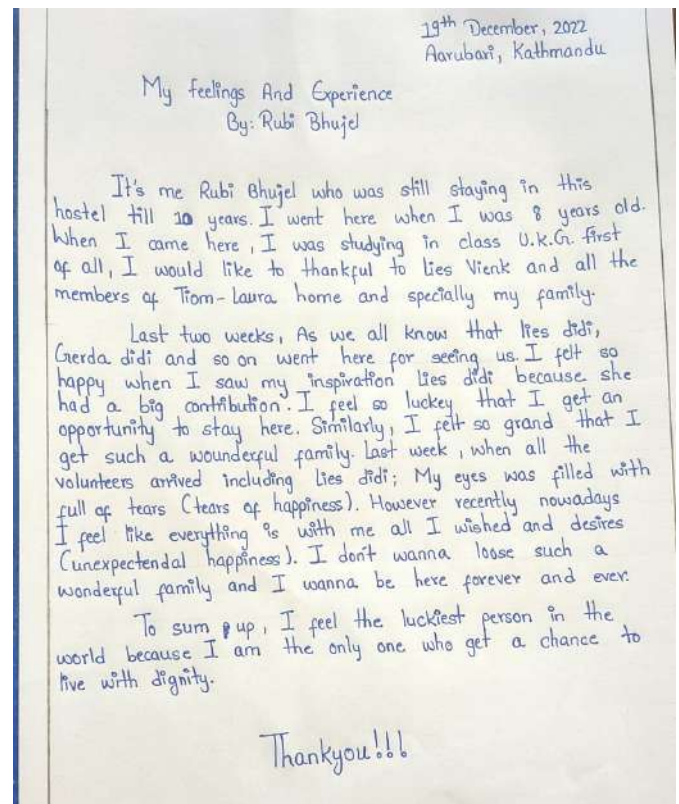 19th December, 2022
Aarubari, Kathmandu
My feelings And Experience
By: Rubi Bhujel
It's me Rubi Bhujel who was still staying in this
hostel till 10 years. I went here when I was 8 years old.
When I came here, I was studying in class U.K.G. first
of all, I would like to thankful to Lies Vienk and all the
members of Tiom-Laura home and specially my family.
Last two weeks, As we all know that lies didi,
Gerda didi and so on went here for seeing us. I felt so
happy when I saw my inspiration Lies didi because she
had a big contribution. I feel so luckey that I get an
opportunity to stay here. Similarly, I felt so grand that I
get such a wounderful family. Last week, when all the
volunteers arrived including Lies didi; My eyes was filled with
full of tears (tears of happiness). However recently nowadays
I feel like everything is with me all I wished and desires
(unexpectendal happiness). I don't wanna loose such a
wonderful family and I wanna be here forever and ever.
To sum up, I feel the luckiest person in the
world because I am the only one who get a chance to
live with dignity.
Thankyou!!!